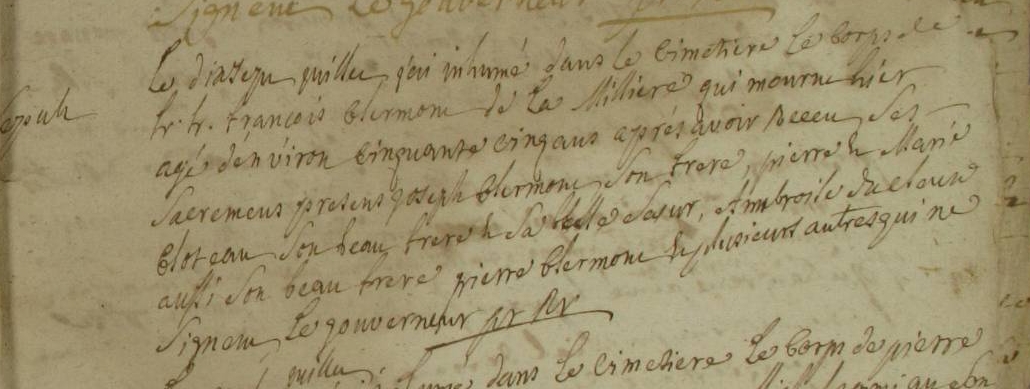 Signent Le gouverneur
Le dixsept juillet j'ai inhumé dans le Cimetiere Le Corps de
fr. fr. françois Clermont de La Milliere qui mourut hier
Sepult
agé d'environ Cinquante Cinq ans après avoir Receu Ses
Sacremens presens joseph Clermont Son frere, pierre & Marie
Cloteau Son beau frere & Sa belle Sœur, Ambroise
aussi Son beau frere pierre Clermont & plusieurs autres qui ne
Signent Le gouverneur pr
juillet
dans Le Cimetiere Le Corps de pierre